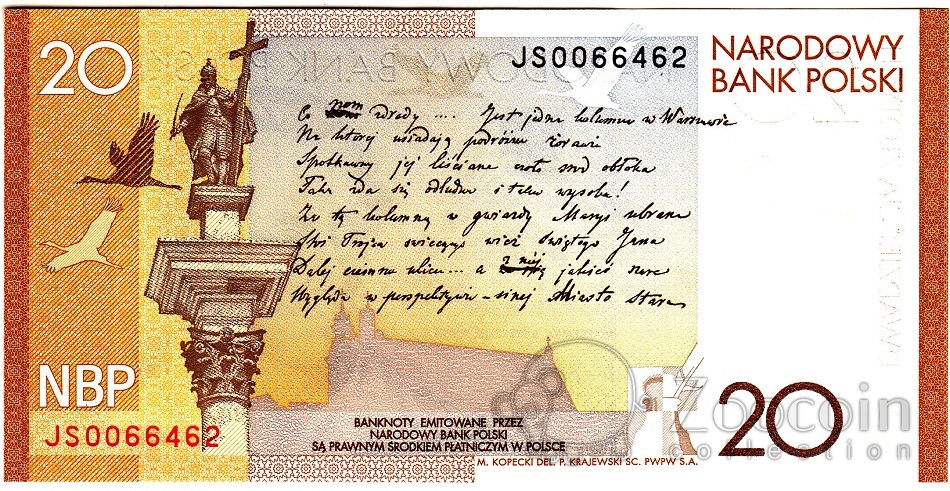 20
JS0066462
NARODOWY
BANK POLSKI
Co nom zdrady .... Jest jedna kolumna w Warszawie
Na której usiadają podróżne żórawie
Spotkawszy jej liściane czoło śród obłoka
Taka zda się odludna i taka wysoka!
Za tą kolumną w gwiazdy Maryi ubrana
Stoi Trójca świecąca wież Świętego Jana
Dalej ciemna ulica... a z niej jakieś szare
Wygląda w perspektywie - sinej Miasto Stare
NBP
JS0066462
BANKNOTY EMITOWANE PRZEZ
NARODOWY BANK POLSKI
SĄ PRAWNYM ŚRODKIEM PŁATNICZYM W POLSCE
M. KOPECKI DEL. P. KRAJEWSKI SC. PWPW S.A.
20
Zoocoin
collection